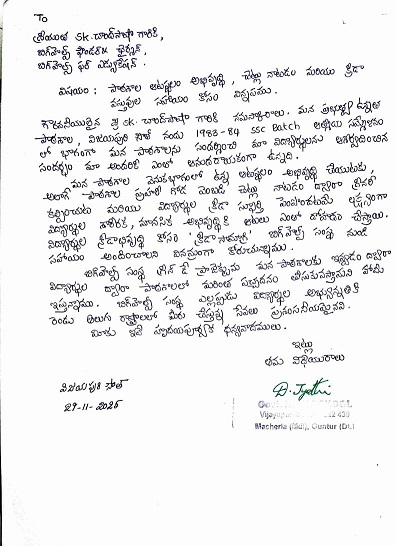 To
శ్రీయుత SK. చాంద్ పాషా గారికి,
బిగ్ హెల్ప్ ఫౌండర్ & ఛైర్మన్,
బిగ్ హెల్ప్ ఫర్ ఎడ్యుకేషన్.
విషయం : పాఠశాల ఆటస్థలం అభివృద్ధి, చెట్లు నాటడం మరియు క్రీడా
వస్తువుల సహాయం కోసం విన్నపము.
గౌరవనీయులైన శ్రీ SK. చాంద్ పాషా గారికి నమస్కారాలు. మన ప్రభుత్వ ఉన్నత
పాఠశాల, విజయపురి సౌత్ నందు 1983-84 SSC Batch ఆత్మీయ సమ్మేళనం
లో భాగంగా మన పాఠశాలను సందర్శించి మా విద్యార్థులను ఆశీర్వదించిన
సందర్భం మా అందరికీ ఎంతో ఆనందదాయకంగా ఉన్నది.
మన పాఠశాల వెనుకభాగంలో ఉన్న ఆటస్థలం అభివృద్ధి చేయుటకు,
అలాగే పాఠశాల ప్రహరీ గోడ వెంబడి చెట్లు నాటడం ద్వారా
కల్పించుట మరియు విద్యార్థుల క్రీడా స్ఫూర్తి పెంపొందించుటే లక్ష్యంగా
విద్యార్థుల శారీరక, మానసిక అభివృద్ధికి ఆటలు ఎంతో దోహదం చేస్తాయి.
విద్యార్థుల క్రీడాభివృద్ధి కోసం "క్రీడా సామాగ్రి" బిగ్ హెల్ప్ సంస్థ నుండి
సహాయం అందించాలని వినమ్రంగా కోరుచున్నాము.
బిగ్ హెల్ప్ సంస్థ గ్రీన్ మన పాఠశాలకు ఇవ్వడం ద్వారా
విద్యార్థుల ద్వారా పాఠశాలలో మరింత పచ్చదనం తీసుకువస్తామని హామీ
ఇస్తున్నాము. బిగ్ హెల్ప్ సంస్థ ఎల్లప్పుడు విద్యార్థుల అభ్యున్నతికి
రెండు తెలుగు రాష్ట్రాలలో మీరు చేస్తున్న సేవలు ప్రశంసనీయమైనవి.
మీకు ఇవే హృదయపూర్వక ధన్యవాదములు.
ఇట్లు
తమ విధేయురాలు
D. Jyothi
విజయపురి సౌత్
29-11-2025
Macherla (Md), Guntur (Dt.)